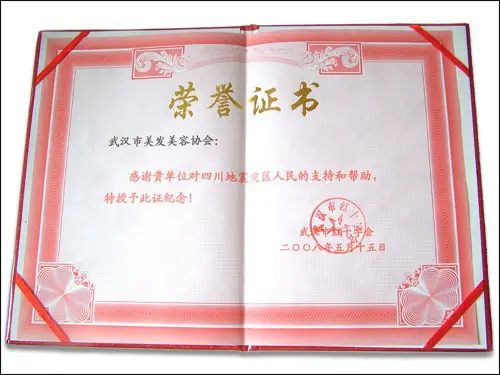 荣誉证书
武汉市美发美容协会：
感谢贵单位对四川地震灾区人民的支持和帮助，
特授予此证纪念！
武汉市红十字会
二〇〇八年五月十五日
武汉市红十字会